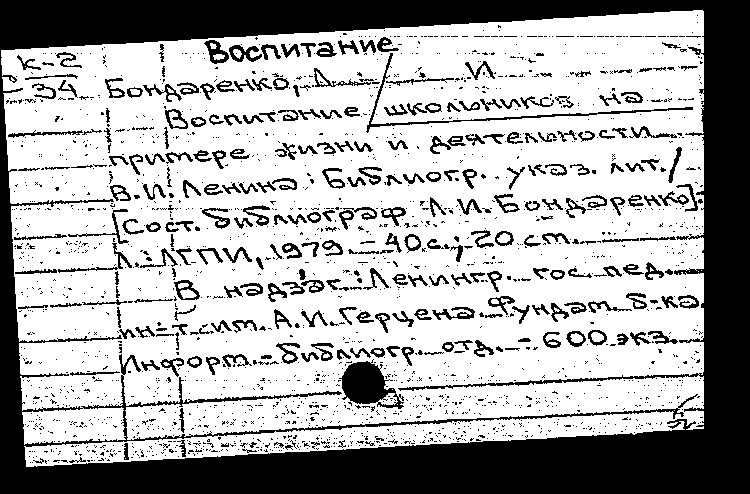 Воспитание
К-2
34
Бондаренко, Л. И
Воспитание школьников на
примере жизни и деятельности
В.И. Ленина: Библиогр. указ. лит./
[Сост. библиограф Л.И. Бондаренко].-
Л.: ЛГПИ, 1979. - 40 с.; 20 см.
В надзаг.: Ленингр. гос. пед.
ин-т им. А.И. Герцена. Фундам. б-ка.
Информ.-библиогр. отд. - 600 экз.